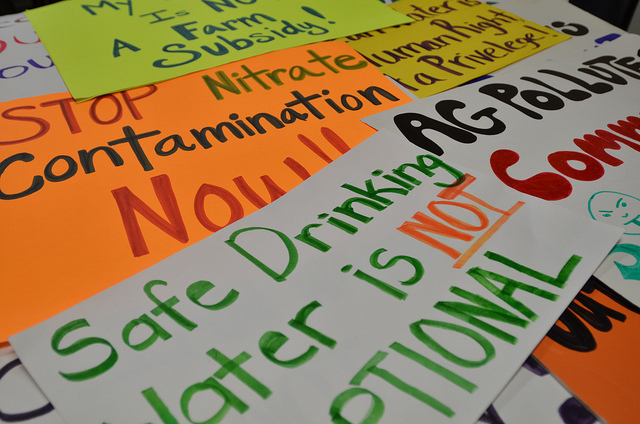 My Is No
A Farm
Subsidy!
Water is
Human Right
a Privelege!
STOP Nitrate
Contamination
Now!!
AG-POLLUTE
Comm
Safe Drinking
Water is NOT
OPTIONAL
out